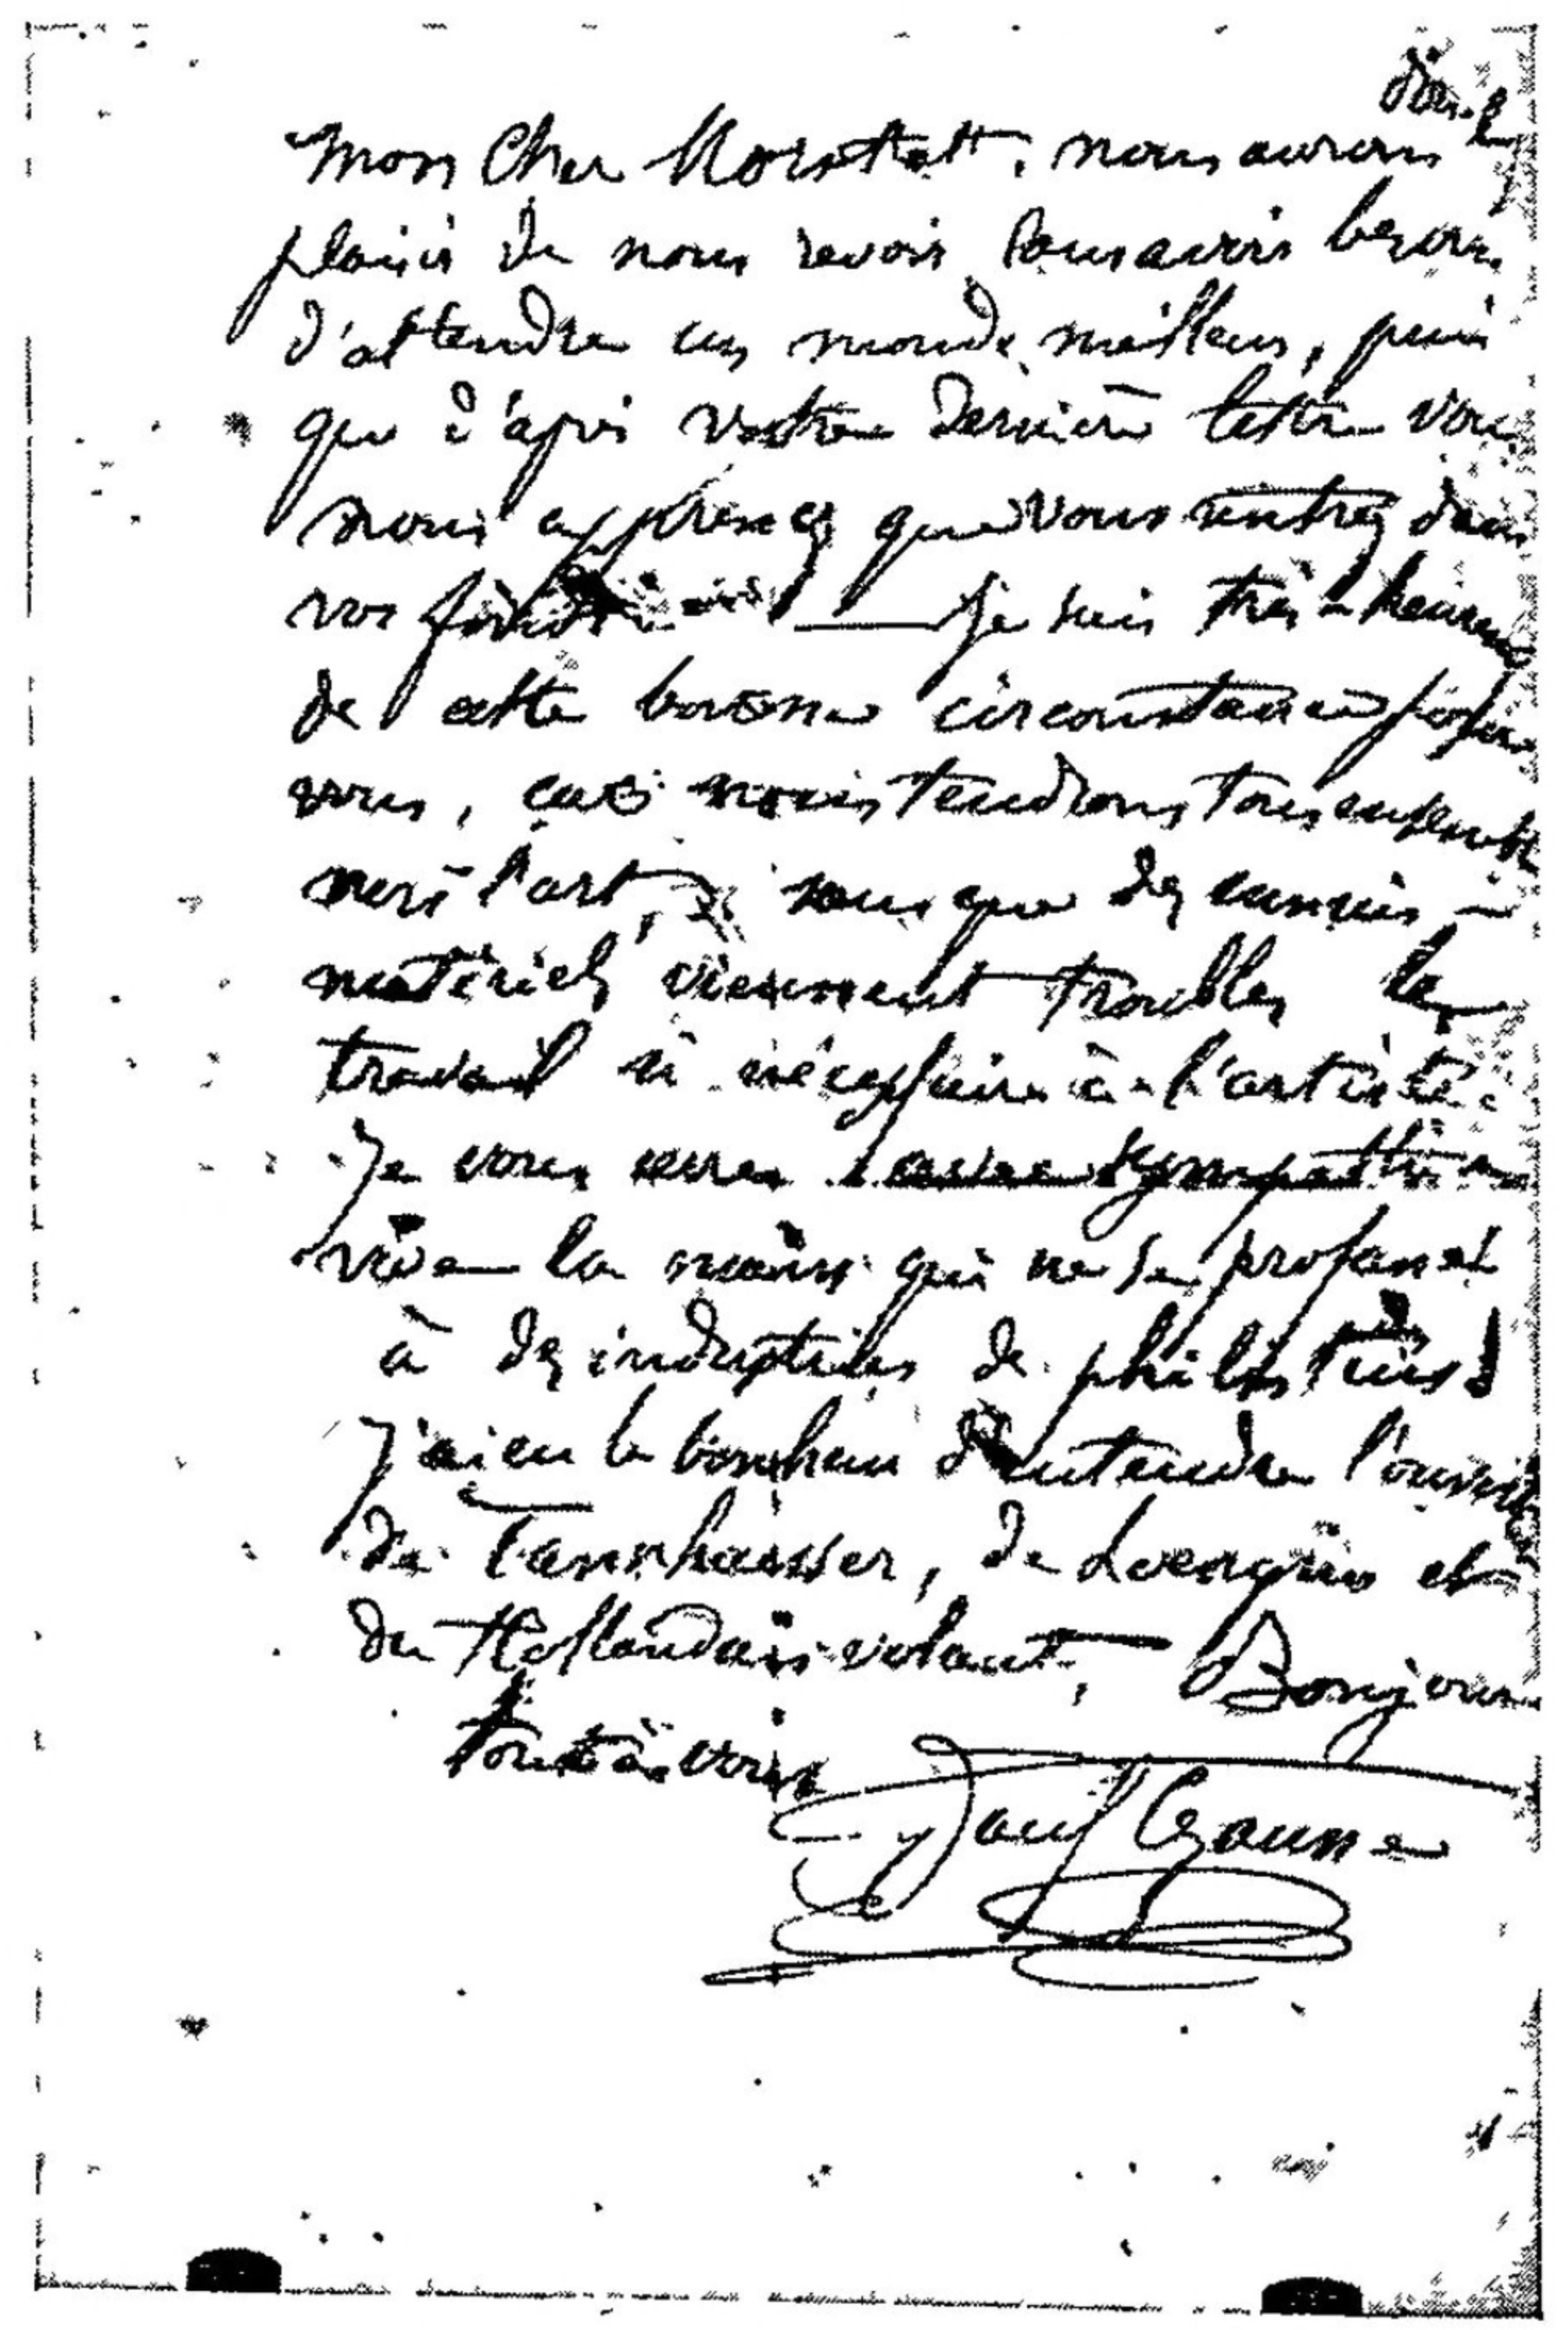 donc le
Mon Cher Morstatt, nous aurons
plaisir de nous revoir sans avoir besoin
d'attendre un monde meilleur, puis
que d'après votre dernière lettre vous
nous apprenez que vous rentrez dans
vos — Je suis très heureux
de cette bonne circonstance pour
vous, car nous tendrons tous ensemble
vers l'art, sans que des ennuis
matériels viennent troubler le
travail si nécessaire à l'artiste.
Je vous serre sympathie
vive la main qui ne se profane
à des industries de philistins!
J'ai eu le bonheur d'entendre l'ouverture
de Tannhaüsser, de Loengrin et
du Hollandais volant, Bonjour
tout à vous
Paul Cezanne